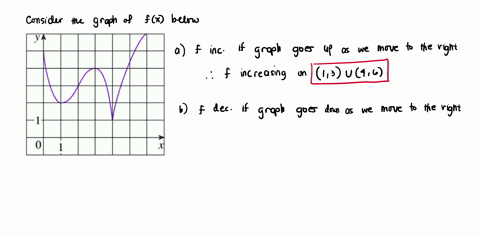 Consider the graph of f(x) below
a) f inc. if graph goes up as we move to the right
∴ f increasing on (1,3) ∪ (4,6)
b) f dec. if graph goes down as we move to the right
y
1
0 1 x